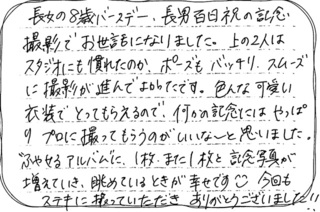 長女の8歳バースデー、長男百日祝の記念
撮影でお世話になりました。上の2人は
スタジオにも慣れたのか、ポーズもバッチリ、スムーズ
に撮影が進んでよかったです。色んな可愛い
衣装でとってもらえるので、何かの記念にはやっぱ
りプロに撮ってもらうのがいいな～と思いました。
ふやせるアルバムに、1枚、また1枚と記念写真が
増えていき、眺めているときが幸せです☺ 今回も
ステキに撮っていただき ありがとうございました!!